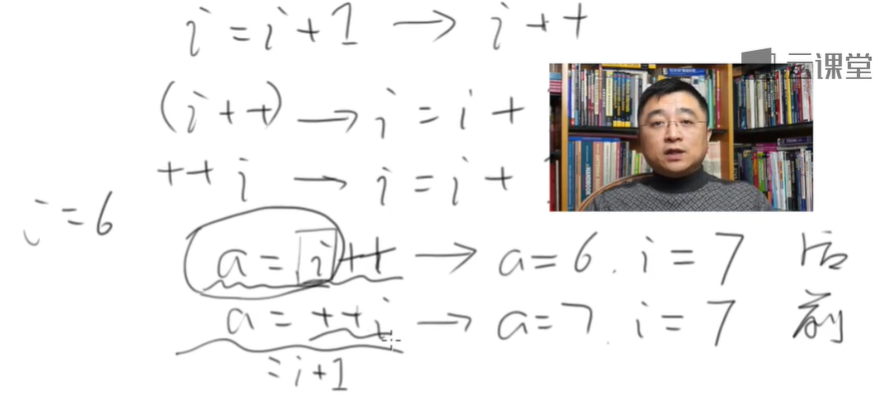 i = i + 1 → i++
云课堂
(i++) → i = i +
++i → i = i +
i = 6
a = i++ → a = 6. i = 7 后
a = ++i → a = 7. i = 7 前
= i + 1